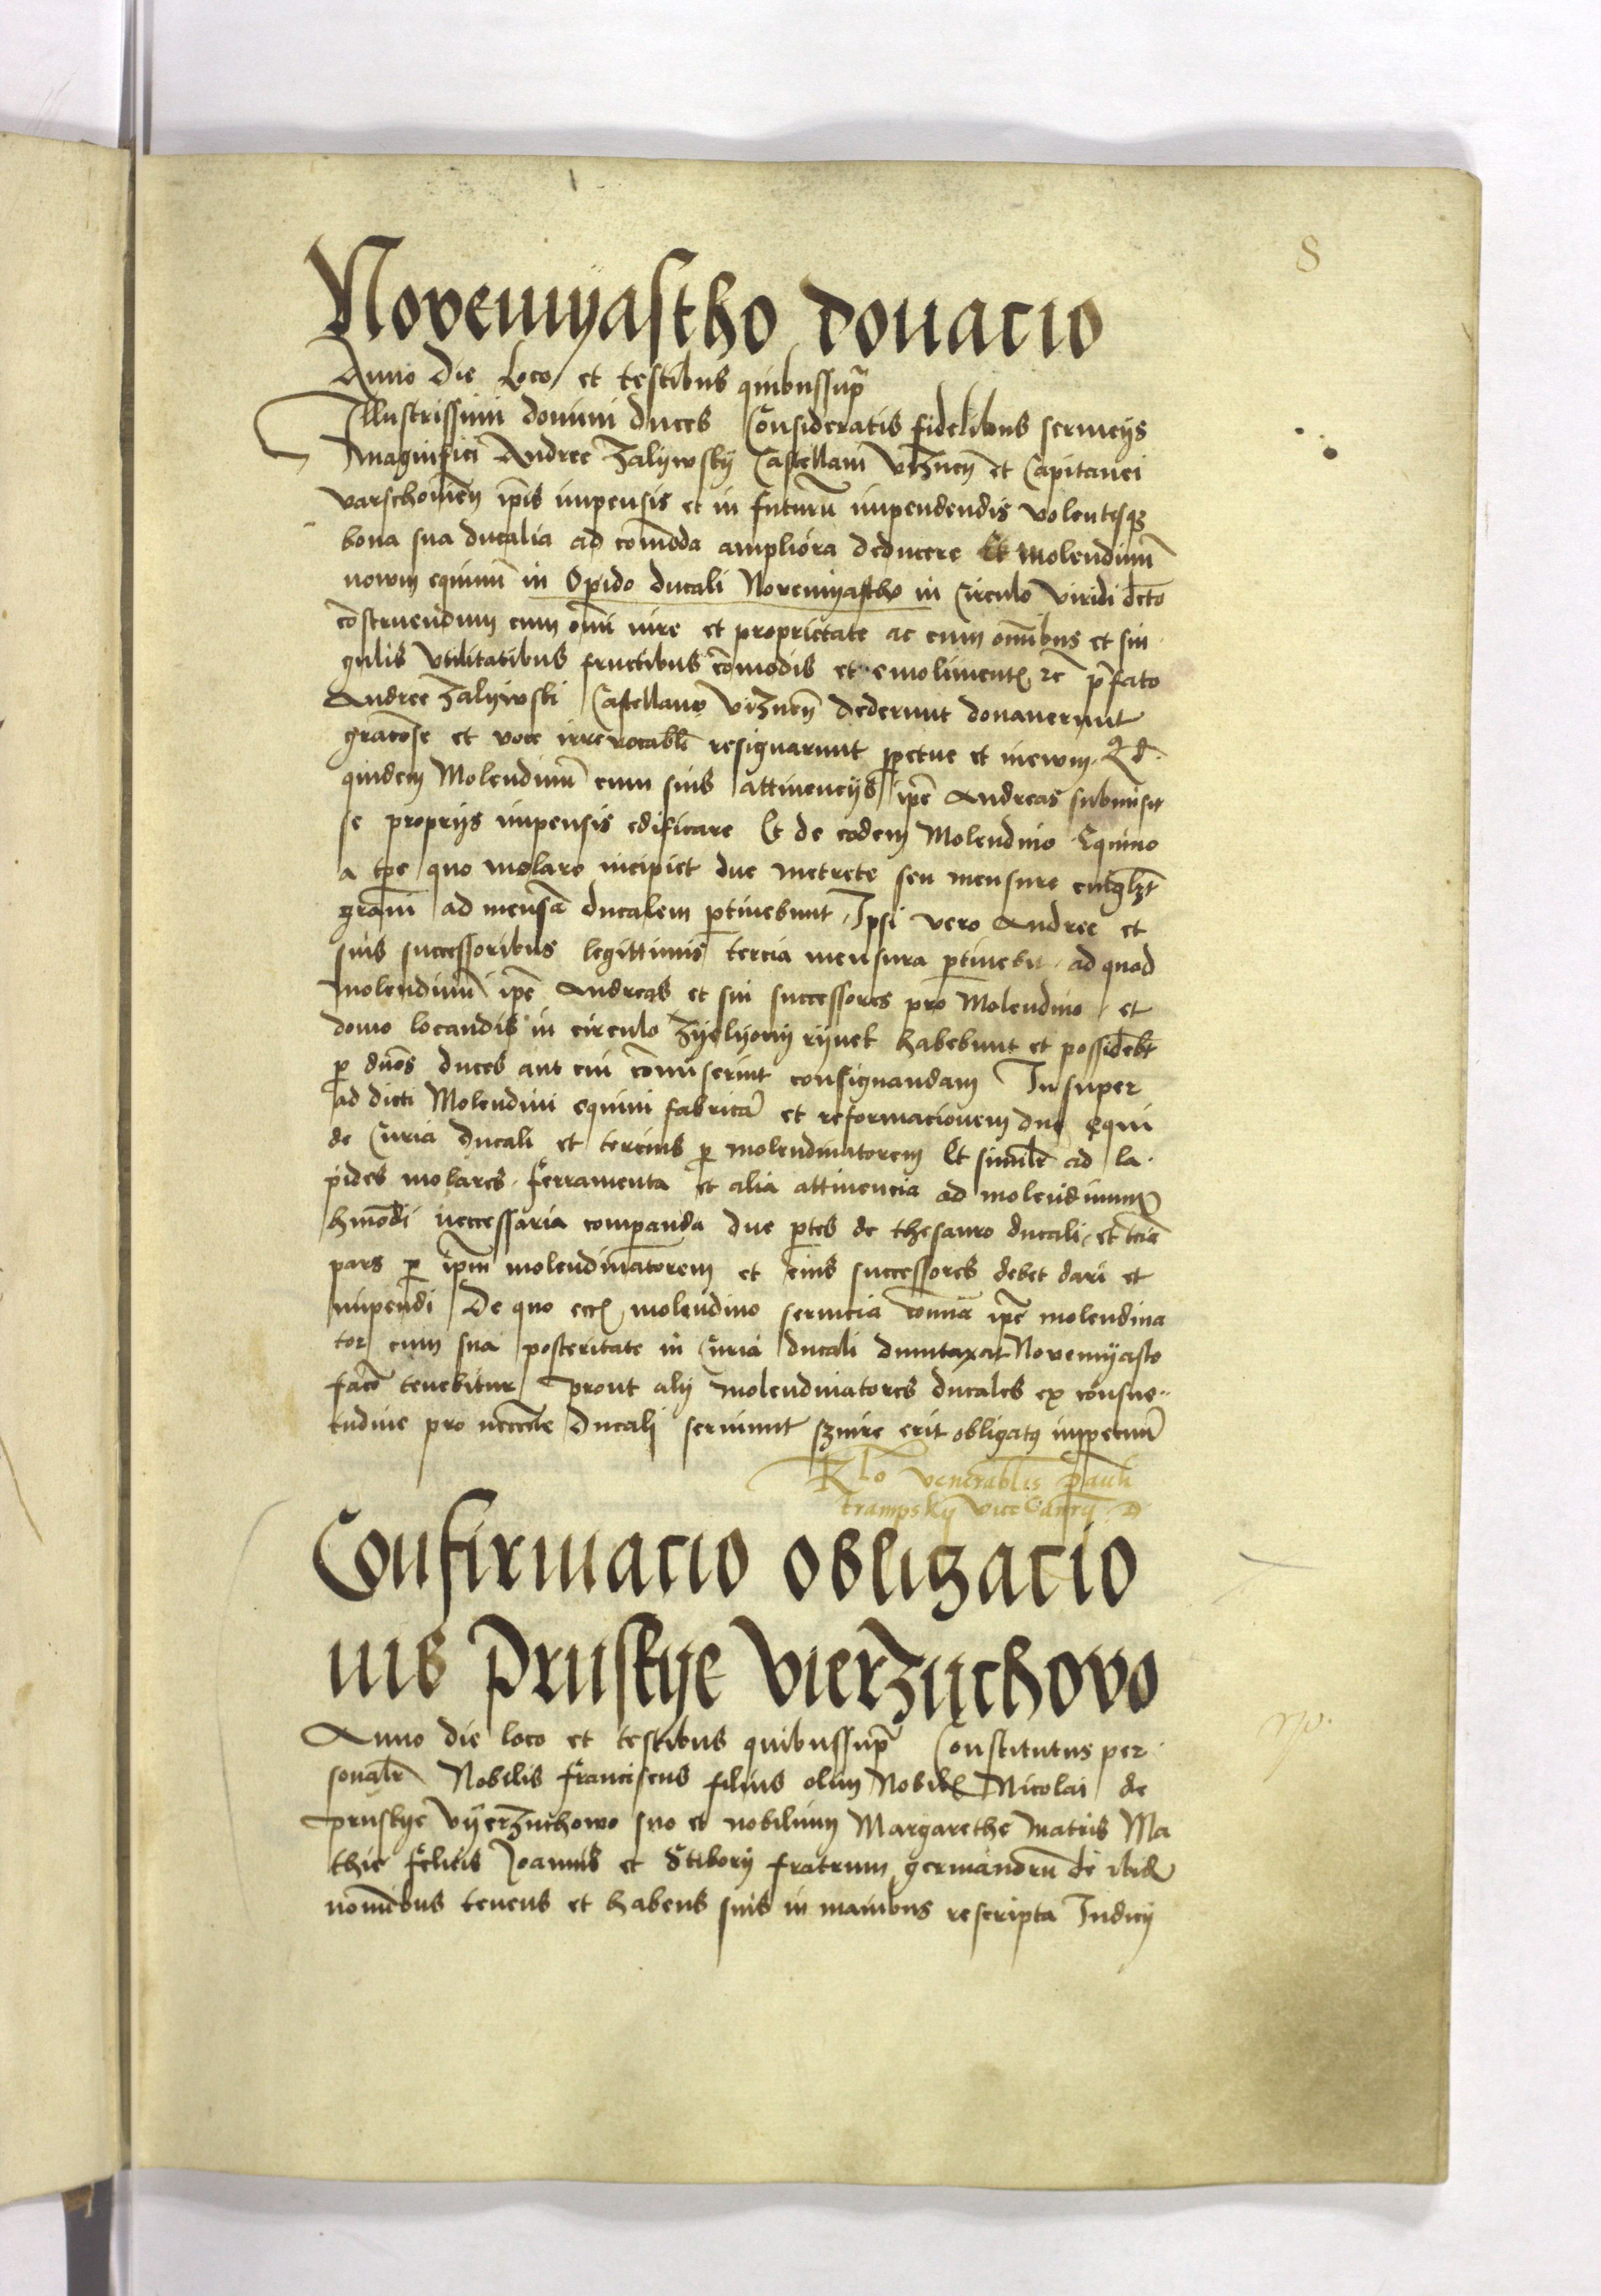 8
Novemyastho donacio
Anno die Loco et testibus quibussup̄
Illustrissimi domini duces Consideratis fidelibus seruicijs
Magnifici Andree Zalijwskij Castellani Viznen̄ et Capitanei
varschouien̄ ip̄is impensis et in futurū impendendis volentesq3
bona sua ducalia ad com̄oda ampliora deducere Et Molendinū
nowm equinū in Opido ducali Novemiyastho in Circulo Viridi dc̄to
cōstruendum cum om̄i iure et proprietate ac cum om̄ibus et sin
gulis Vtilitatibus fructibus cōmodis et emolimentꝭ ꝛc̄ p̄fato
Andree Zalijwski Castellano Viznen̄ dederunt donauerunt
grac̄ose et voce irreuocabl̄r resignarunt ꝑpetue et inewm. Qd̄
quidem Molendinū cum suis attinencijs ip̄e Andreas submisit
se proprijs impensis edificare Et de eodem Molendino Equino
a tp̄e quo molare incipiet due metrete seu mensure
grani ad mensā ducalem ꝑtinebunt. Ipsi vero Andree et
suis successoribus legittimis tercia mensura ꝑtinebit. ad quod
molendinū ip̄e Andreas et sui successores pro Molendino et
domo locandis in circulo Zyelyony rijnek habebunt et possideb̄t
ꝑ dn̄os duces aut cui com̄iserint consignandam Insuper
ad dicti Molendini equini fabricā et reformacionem due equi
de Curia ducali et tercius ꝑ molendinatorem Et simil̄r ad la-
pides molares. ferramenta et alia attinencia ad molendinum
hm̄odi neccessaria comparanda due ꝑtes de thesauro ducali et tcia
pars ꝑ ip̄m molendinatorem et eius successores debet dari et
impendi De quo ecc̄ molendino seruicia om̄ia ip̄e molendina
tor cum sua posteritate in Curia ducali dumtaxat Novemyasto
fac̄e tenebitur prout alij molendinatores ducales ex consue-
tudine pro neccc̄te ducali seruiunt s̄zuire erit obligatꝰ inꝑpetuū
Rl̄o venerablis pauli
trampskij vice Canc̄ij D
Confirmacio obligacio
nis Pruskye Vierzuchovo
Anno die loco et testibus quibussup̄ Constitutus per
sonal̄r Nobilis franciscus filius olim Nobilꝭ Nicolai de
pruskye Vyerzuchowo suo et nobilium Margarethe matris Ma
thie felicis Joannis et Stiborij fratrum germanorū de ibid̄
nom̄ibus tenens et habens suis in manibus rescripta Judicij